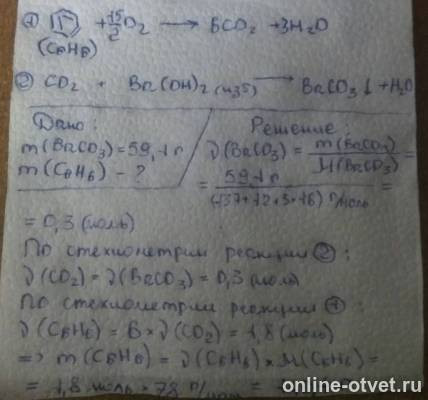 ① + 15/2 O2 → 6CO2 + 3H2O
(C6H6)
② CO2 + Ba(OH)2 (изб) → BaCO3↓ + H2O
Дано:
m(BaCO3) = 59,1 г
m(C6H6) - ?
Решение:
ν(BaCO3) = m(BaCO3) / M(BaCO3) =
= 59,1 г / (137+12+3*16) г/моль =
= 0,3 (моль)
По стехиометрии реакции ②:
ν(CO2) = ν(BaCO3) = 0,3 (моль)
По стехиометрии реакции ①:
ν(C6H6) = 6 × ν(CO2) = 1,8 (моль)
=> m(C6H6) = ν(C6H6) × M(C6H6) =
= 1,8 моль * 78 г/
online-otvet.ru